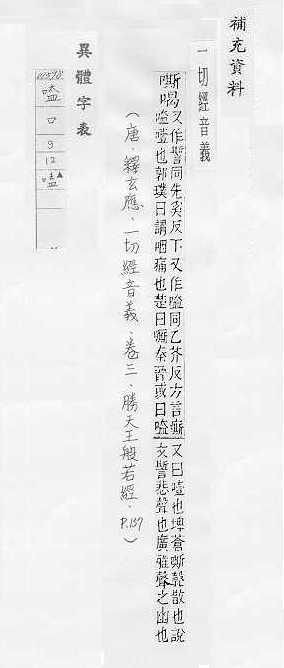 補充資料
一切經音義
嘶喝又作謺同先奚反下又作嗌同乙芥反方言嘶又曰噎也埤蒼嘶聲散也說
嗌噎也郭璞曰謂咽痛也楚曰嘶秦晉或曰嗌文謺悲聲也廣雅聲之幽也
（唐．釋玄應．一切經音義．卷三．勝天王般若經．P.137）
異體字表
嗑
口
9
12
嗑▲